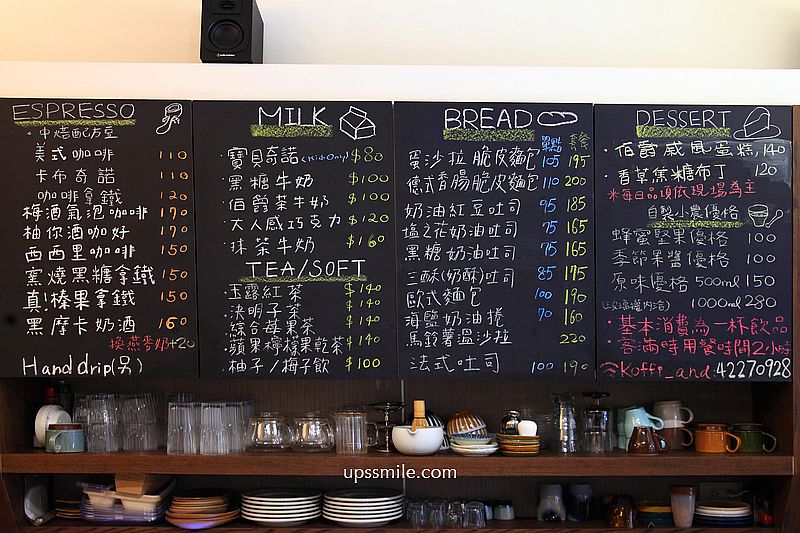 ESPRESSO
・中焙配方豆
美式咖啡 110
卡布奇諾 110
咖啡拿鐵 120
梅酒氣泡咖啡 170
柚你酒咖好 170
西西里咖啡 150
窯燒黑糖拿鐵 150
真!榛果拿鐵 150
黑摩卡奶酒 160
換燕麥奶+20
Hand drip(另)
MILK
・寶貝奇諾(Kid Only) $80
・黑糖牛奶 $100
・伯爵茶牛奶 $100
・大人感巧克力 $120
・抹茶牛奶 $160
TEA/SOFT
・玉露紅茶 $140
・決明子茶 $140
・綜合莓果茶 $140
・蘋果檸檬果乾茶 $140
・柚子/梅子飲 $100
BREAD 單點 套餐
蛋沙拉脆皮麵包 105 195
德式香腸脆皮麵包 110 200
奶油紅豆吐司 95 185
塩之花奶油吐司 75 165
黑糖奶油吐司 75 165
三酥(奶酥)吐司 85 175
歐式麵包 100 190
海鹽奶油捲 70 160
馬鈴薯溫沙拉 220
法式吐司 100 190
DESSERT
・伯爵戚風蛋糕 140
・香草焦糖布丁 120
*每日品項依現場為主
自製小農優格
蜂蜜堅果優格 100
季節果醬優格 100
原味優格 500ml 150
1000ml 280
・基本消費為一杯飲品
・客滿時用餐時間2小時
Koffi_and. 42270928
upssmile.com